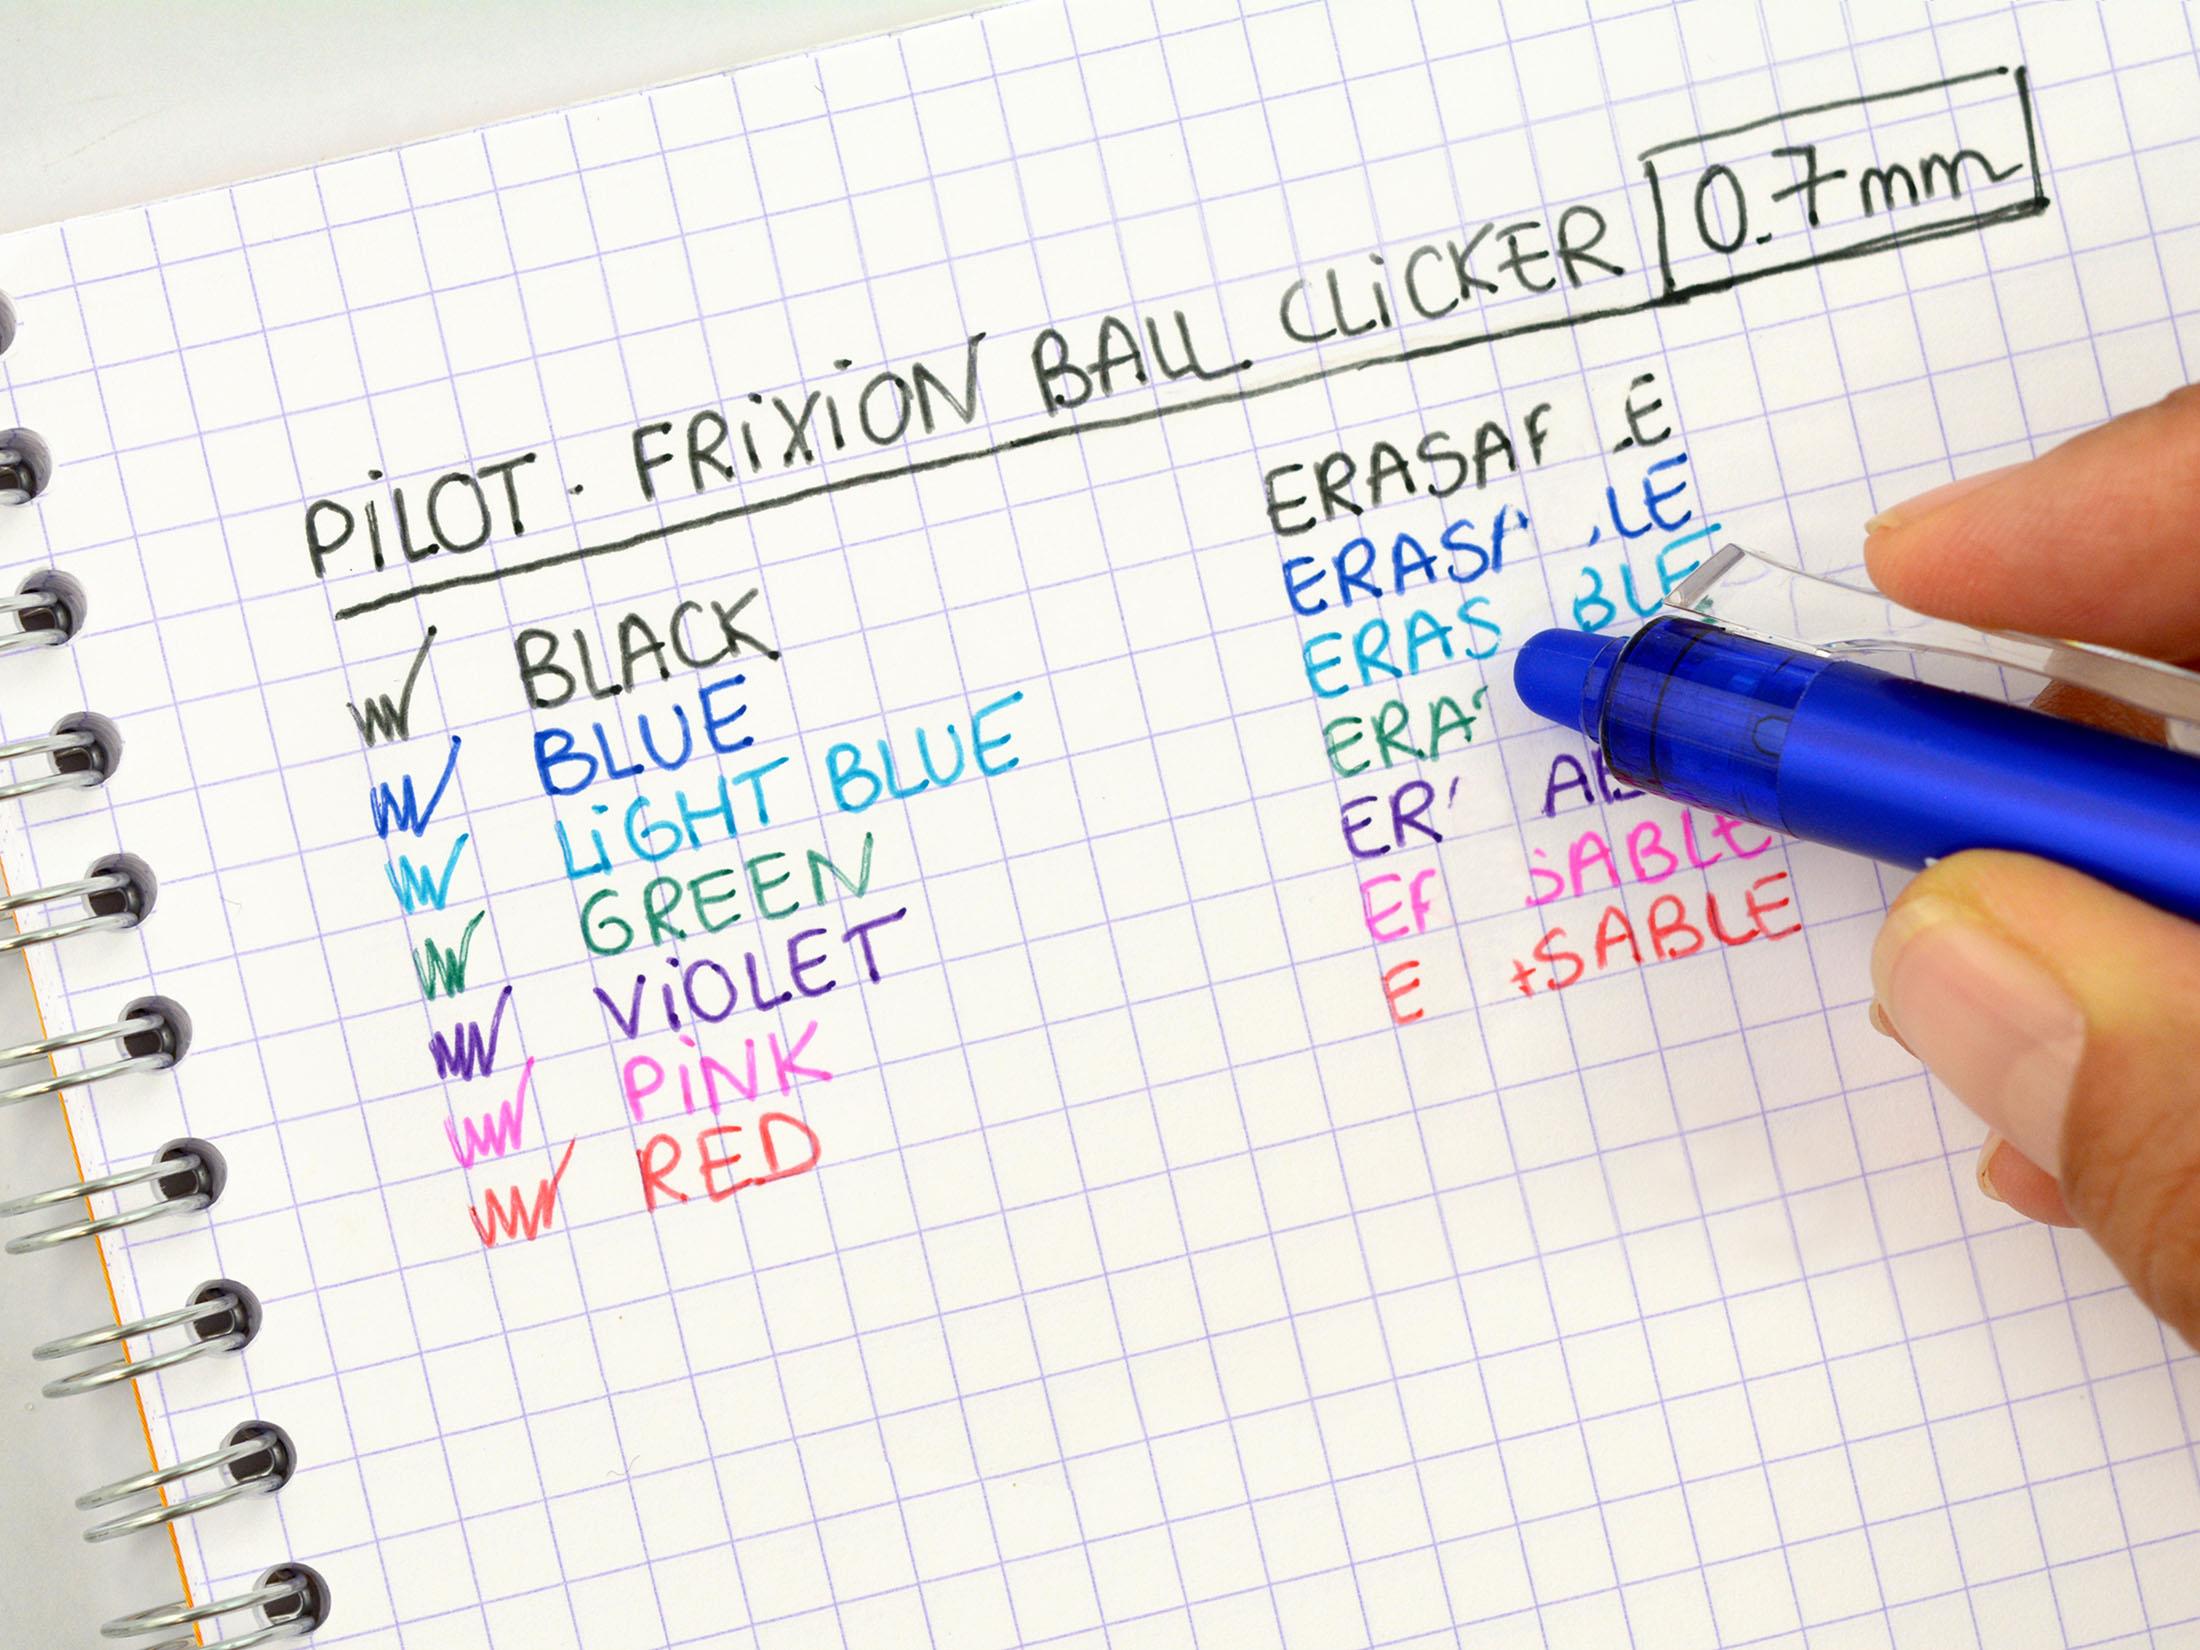 PiLOT. FRiXiON BALL CLiCKER 0.7mm
BLACK
BLUE
LiGHT BLUE
GREEN
ViOLET
PiNK
RED
ERASA LE
ERASA LE
ERAS BLE
ERA
ER AB
ER SABLE
E SABLE